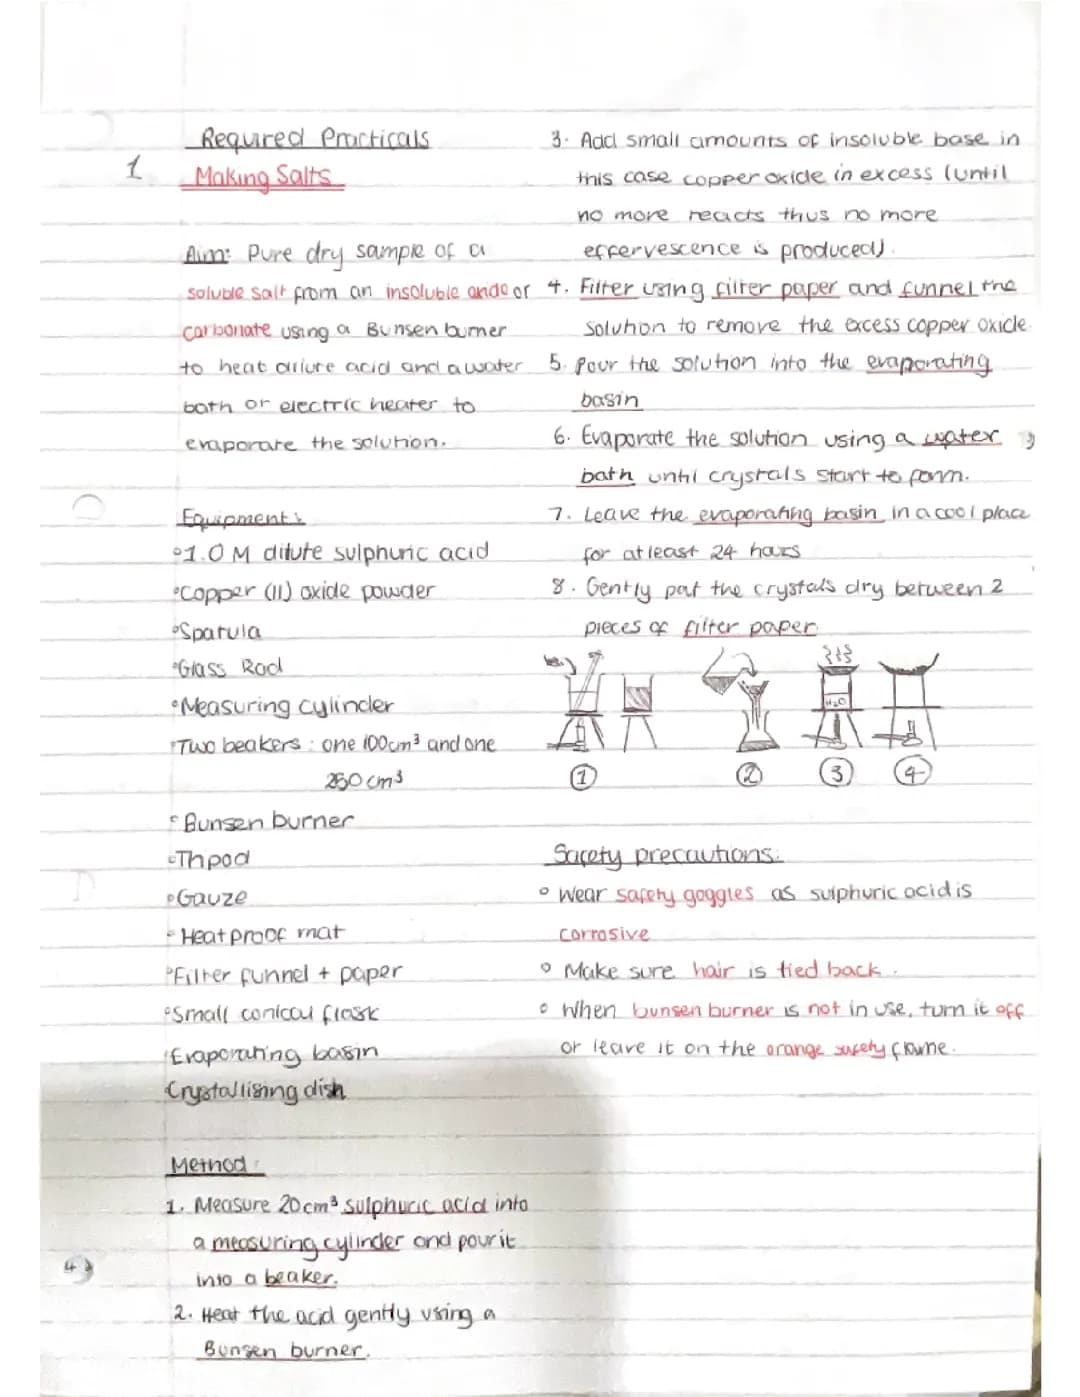 Required Practicals
1 Making Salts
Aim: Pure dry sample of a
soluble salt from an insoluble oxide or
carbonate using a Bunsen burner
to heat dilute acid and a water
bath or electric heater to
evaporate the solution.
Equipment:
1.0 M dilute sulphuric acid
Copper (II) oxide powder
Spatula
Glass Rod
Measuring cylinder
Two beakers : one 100cm³ and one
250 cm³
Bunsen burner
Tripod
Gauze
Heatproof mat
Filter funnel + paper
Small conical flask
Evaporating basin
Crystallising dish
Method:
1. Measure 20cm³ sulphuric acid into
a measuring cylinder and pour it
into a beaker.
2. Heat the acid gently using a
Bunsen burner.
3. Add small amounts of insoluble base in
this case copper oxide in excess (until
no more reacts thus no more
effervescence is produced).
4. Filter using filter paper and funnel the
solution to remove the excess copper oxide.
5. Pour the solution into the evaporating
basin
6. Evaporate the solution using a water
bath until crystals start to form.
7. Leave the evaporating basin in a cool place
for at least 24 hours
8. Gently pat the crystals dry between 2
pieces of filter paper
H₂O
1 2 3 4
Safety precautions:
Wear safety goggles as sulphuric acid is
corrosive
Make sure hair is tied back.
When bunsen burner is not in use, turn it off
or leave it on the orange safety flame.